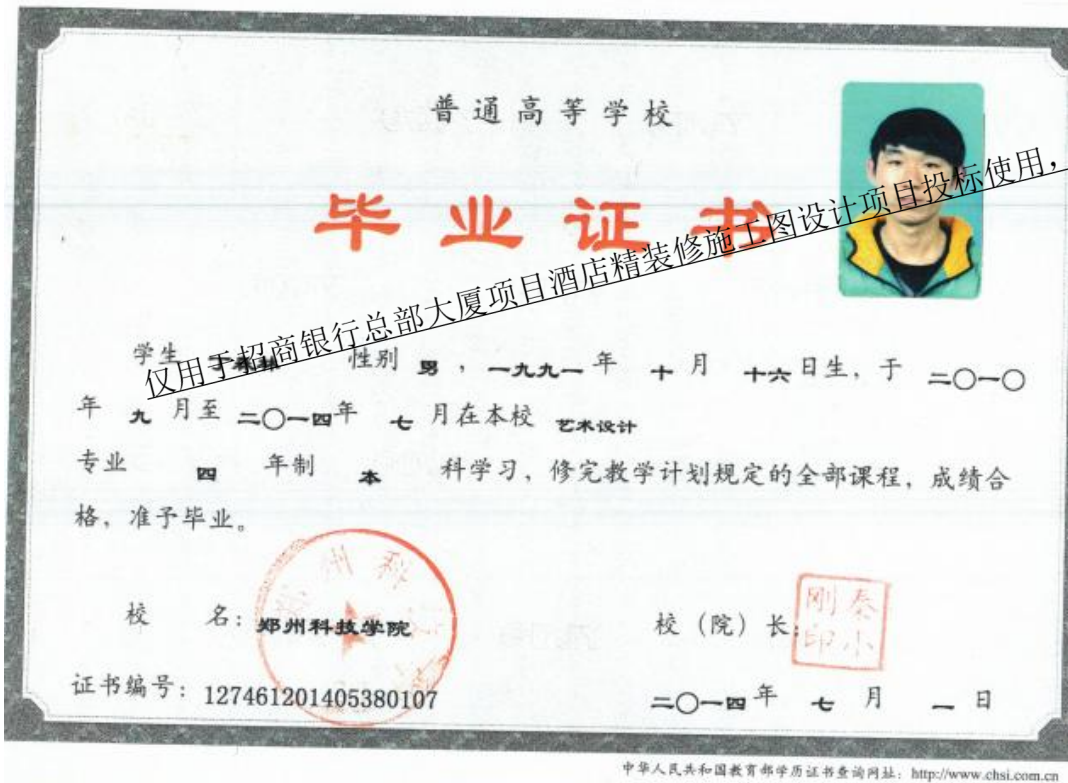 普通高等学校
毕业证书
仅用于招商银行总部大厦项目酒店精装修施工图设计项目投标使用，
学生 性别 男，一九九一年 十月 十六日生，于 二〇一〇
年 九 月至 二〇一四年 七 月在本校 艺术设计
专业 四 年制 本 科学习，修完教学计划规定的全部课程，成绩合
格，准予毕业。
校 名：郑州科技学院
校（院）长：
秦小刚印
证书编号：127461201405380107
二〇一四年 七 月 一 日
中华人民共和国教育部学历证书查询网址：http://www.chsi.com.cn